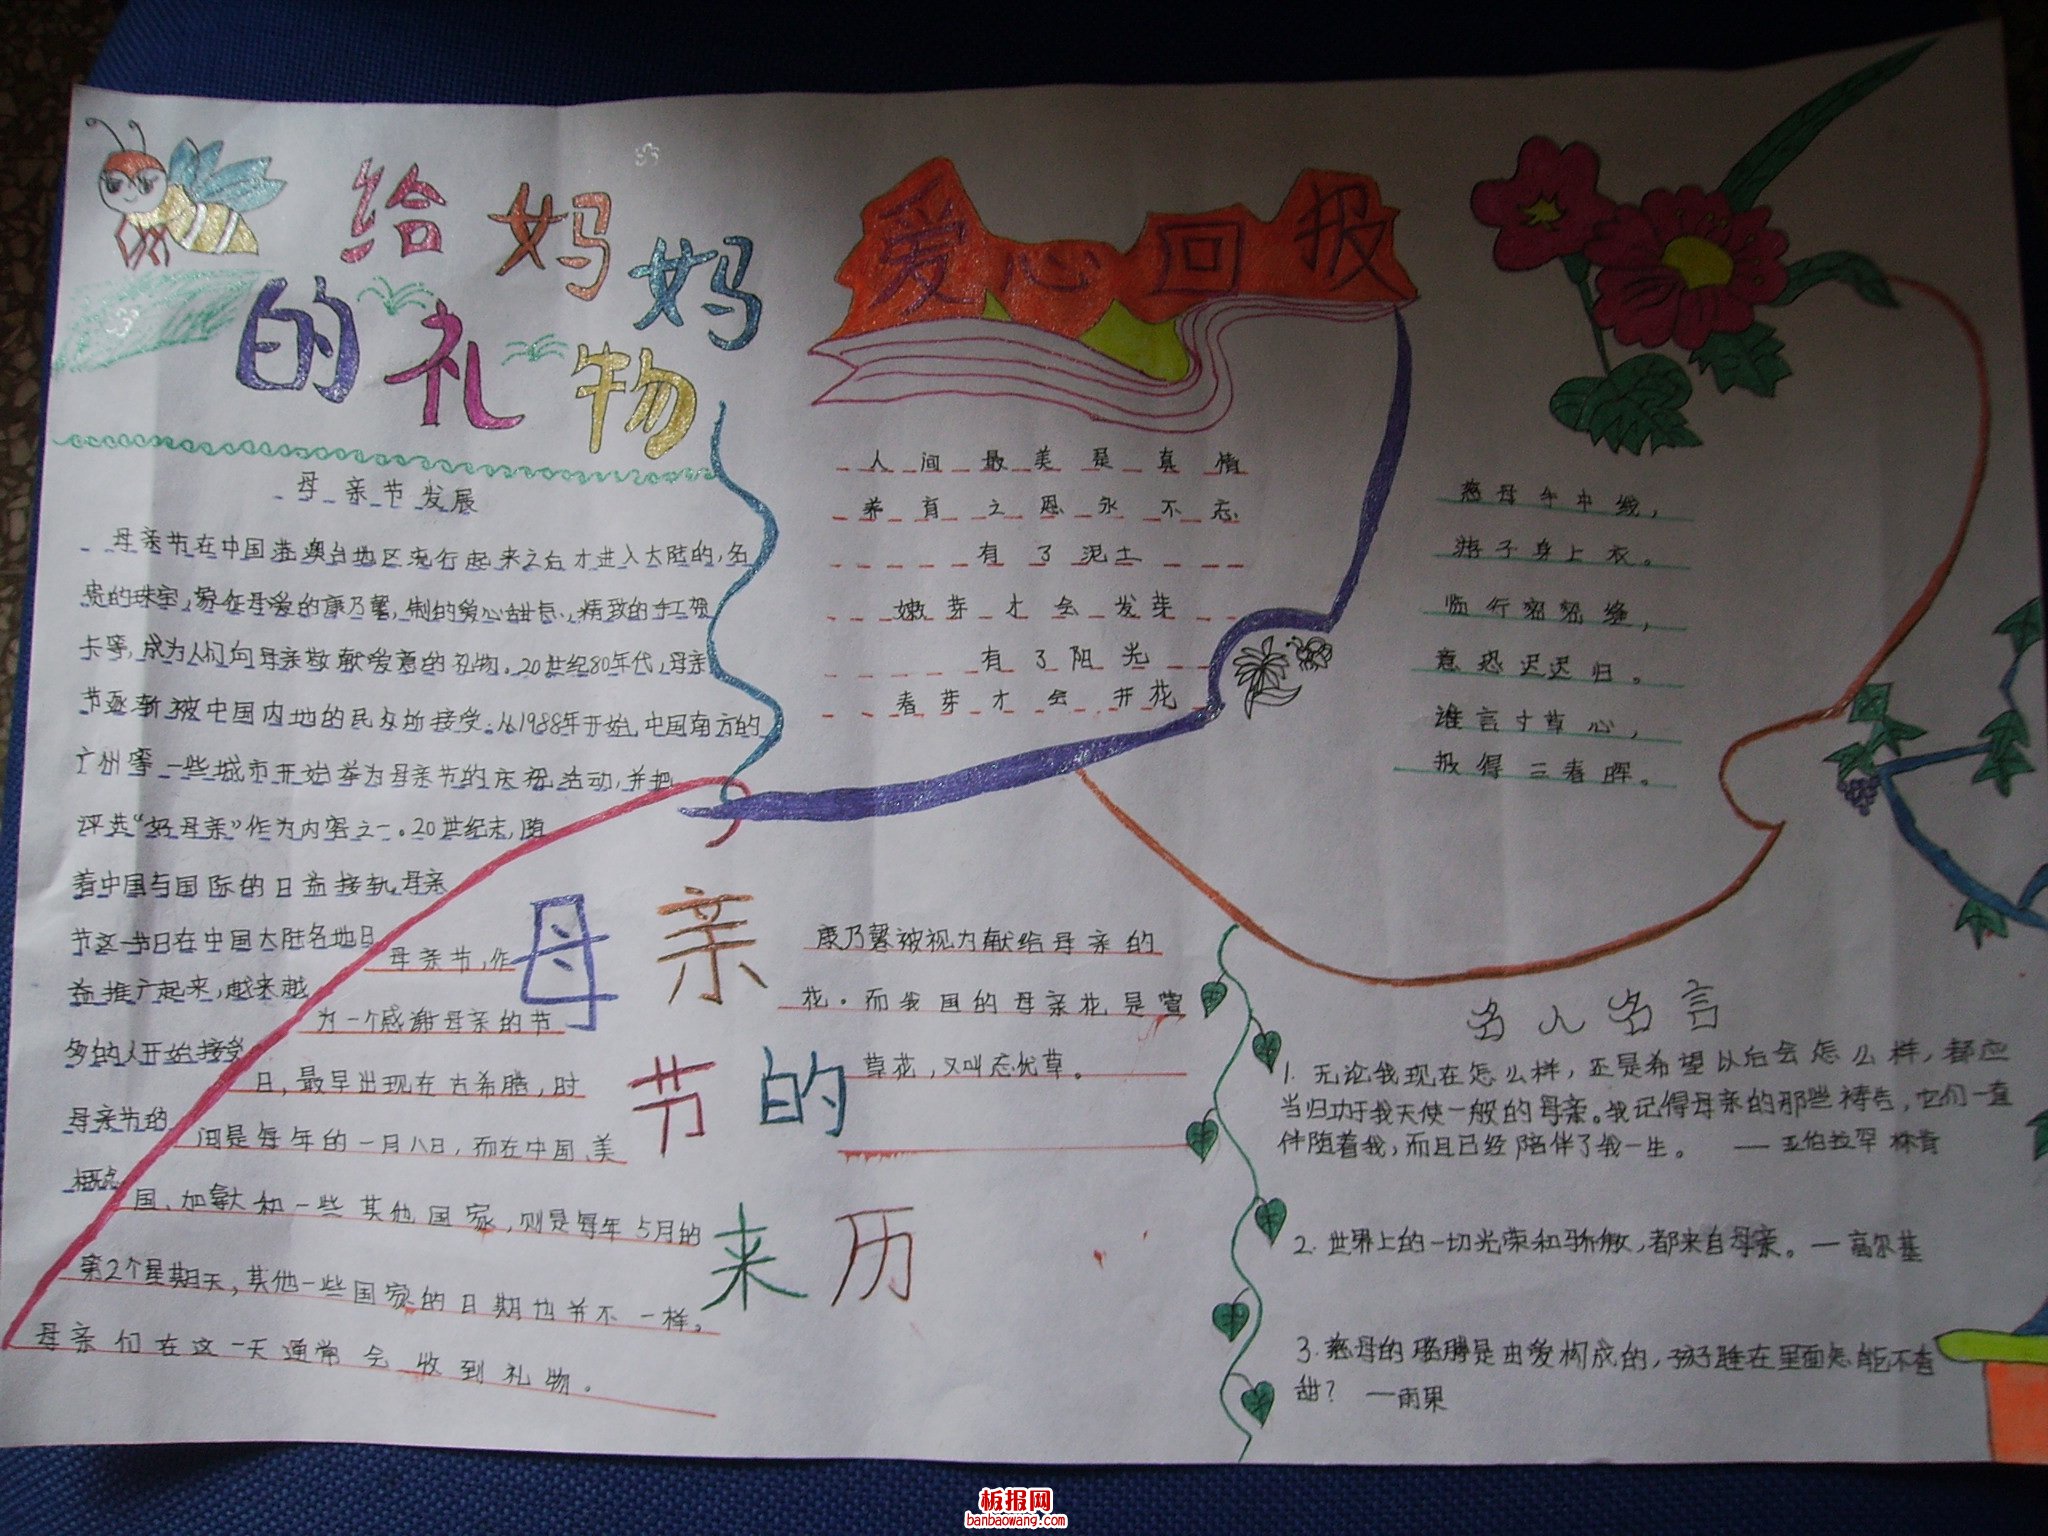 给妈妈
的礼物
母亲节发展
母亲节在中国港澳台地区流行起来之后才进入大陆的,名
贵的珠宝,象征母爱的康乃馨,制的爱心甜点,精致的手工贺
卡等,成为人们向母亲敬献爱意的礼物。20世纪80年代,母亲
节逐渐被中国内地的民众所接受.从1988年开始,中国南方的
广州等一些城市开始举为母亲节的庆祝活动,并把
评选“好母亲”作为内容之一。20世纪末,随
着中国与国际的日益接轨,母亲
节这一节日在中国大陆各地日
益推广起来,越来越
多的人开始接受
母亲节的
概念
爱心回报
人间最美是真情
养育之恩永不忘
有了泥土
嫩芽才会发芽
有了阳光
春芽才会开花
慈母手中线,
游子身上衣。
临行密密缝,
意恐迟迟归。
谁言寸草心,
报得三春晖。
母亲
节的
来历
母亲节,作
为一个感谢母亲的节
日,最早出现在古希腊,时
间是每年的一月八日,而在中国、美
国、加拿大和一些其他国家,则是每年5月的
第2个星期天,其他一些国家的日期也并不一样。
母亲们在这一天通常会收到礼物。
康乃馨被视为献给母亲的
花。而我国的母亲花是萱
草花,又叫忘忧草。
名人名言
1.无论我现在怎么样,还是希望以后会怎么样,都应
当归功于我天使一般的母亲。我记得母亲的那些祷告,它们一直
伴随着我,而且已经陪伴了我一生。 ——亚伯拉罕 林肯
2.世界上的一切光荣和骄傲,都来自母亲。—高尔基
3.慈母的胳膊是由爱构成的,孩子睡在里面怎能不香
甜? —雨果
板报网
banbaowang.com